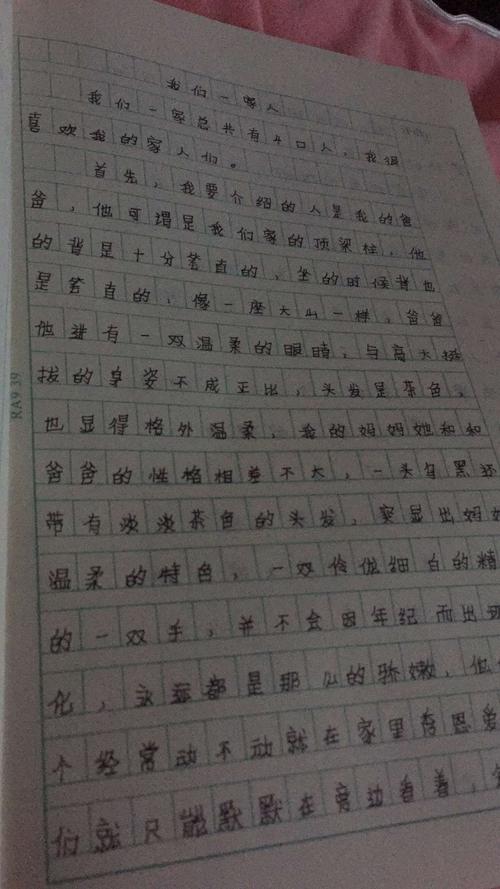 我们一家人
我们一家总共有4口人，我很
喜欢我的家人们。
首先，我要介绍的人是我的爸
爸，他可谓是我们家的顶梁柱，他
的背是十分笔直的，坐的时候背也
是笔直的，像一座大山一样，爸爸
他进有一双温柔的眼睛，与高大挺
拔的身姿不成正比，头发是茶色，
也显得格外温柔，我的妈妈她和和
爸爸的性格相差不大，一头乌黑还
带有淡淡茶色的头发，突显出妈妈
温柔的特色，一双伶俐细白的精
的一双手，并不会因年纪而出现
化，永远都是那么的骄嫩，他们
个经常动不动就在家里秀恩爱
们就只能默默在旁边看着，
RA9 39